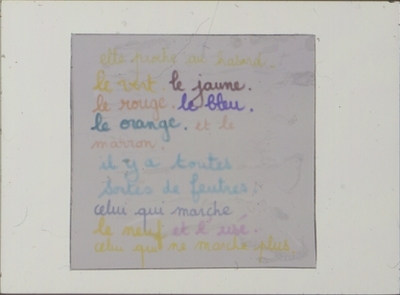 elle pioche au hasard.
le vert le jaune.
le rouge. le bleu.
le orange. et le
marron.
il y a toutes
sortes de feutres.
celui qui marche
le neuf et le usé.
celui qui ne marche plus